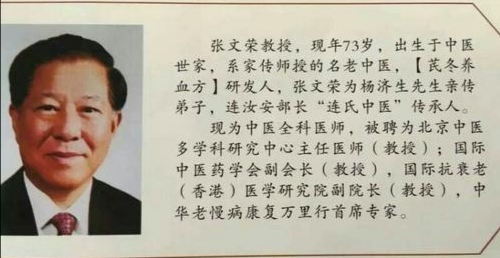 张文荣教授，现年73岁，出生于中医
世家，系家传师授的名老中医，【芪冬养
血方】研发人，张文荣为杨济生先生亲传
弟子，连汝安部长“连氏中医”传承人。
现为中医全科医师，被聘为北京中医
多学科研究中心主任医师（教授）；国际
中医药学会副会长（教授），国际抗衰老
（香港）医学研究院副院长（教授），中
华老慢病康复万里行首席专家。